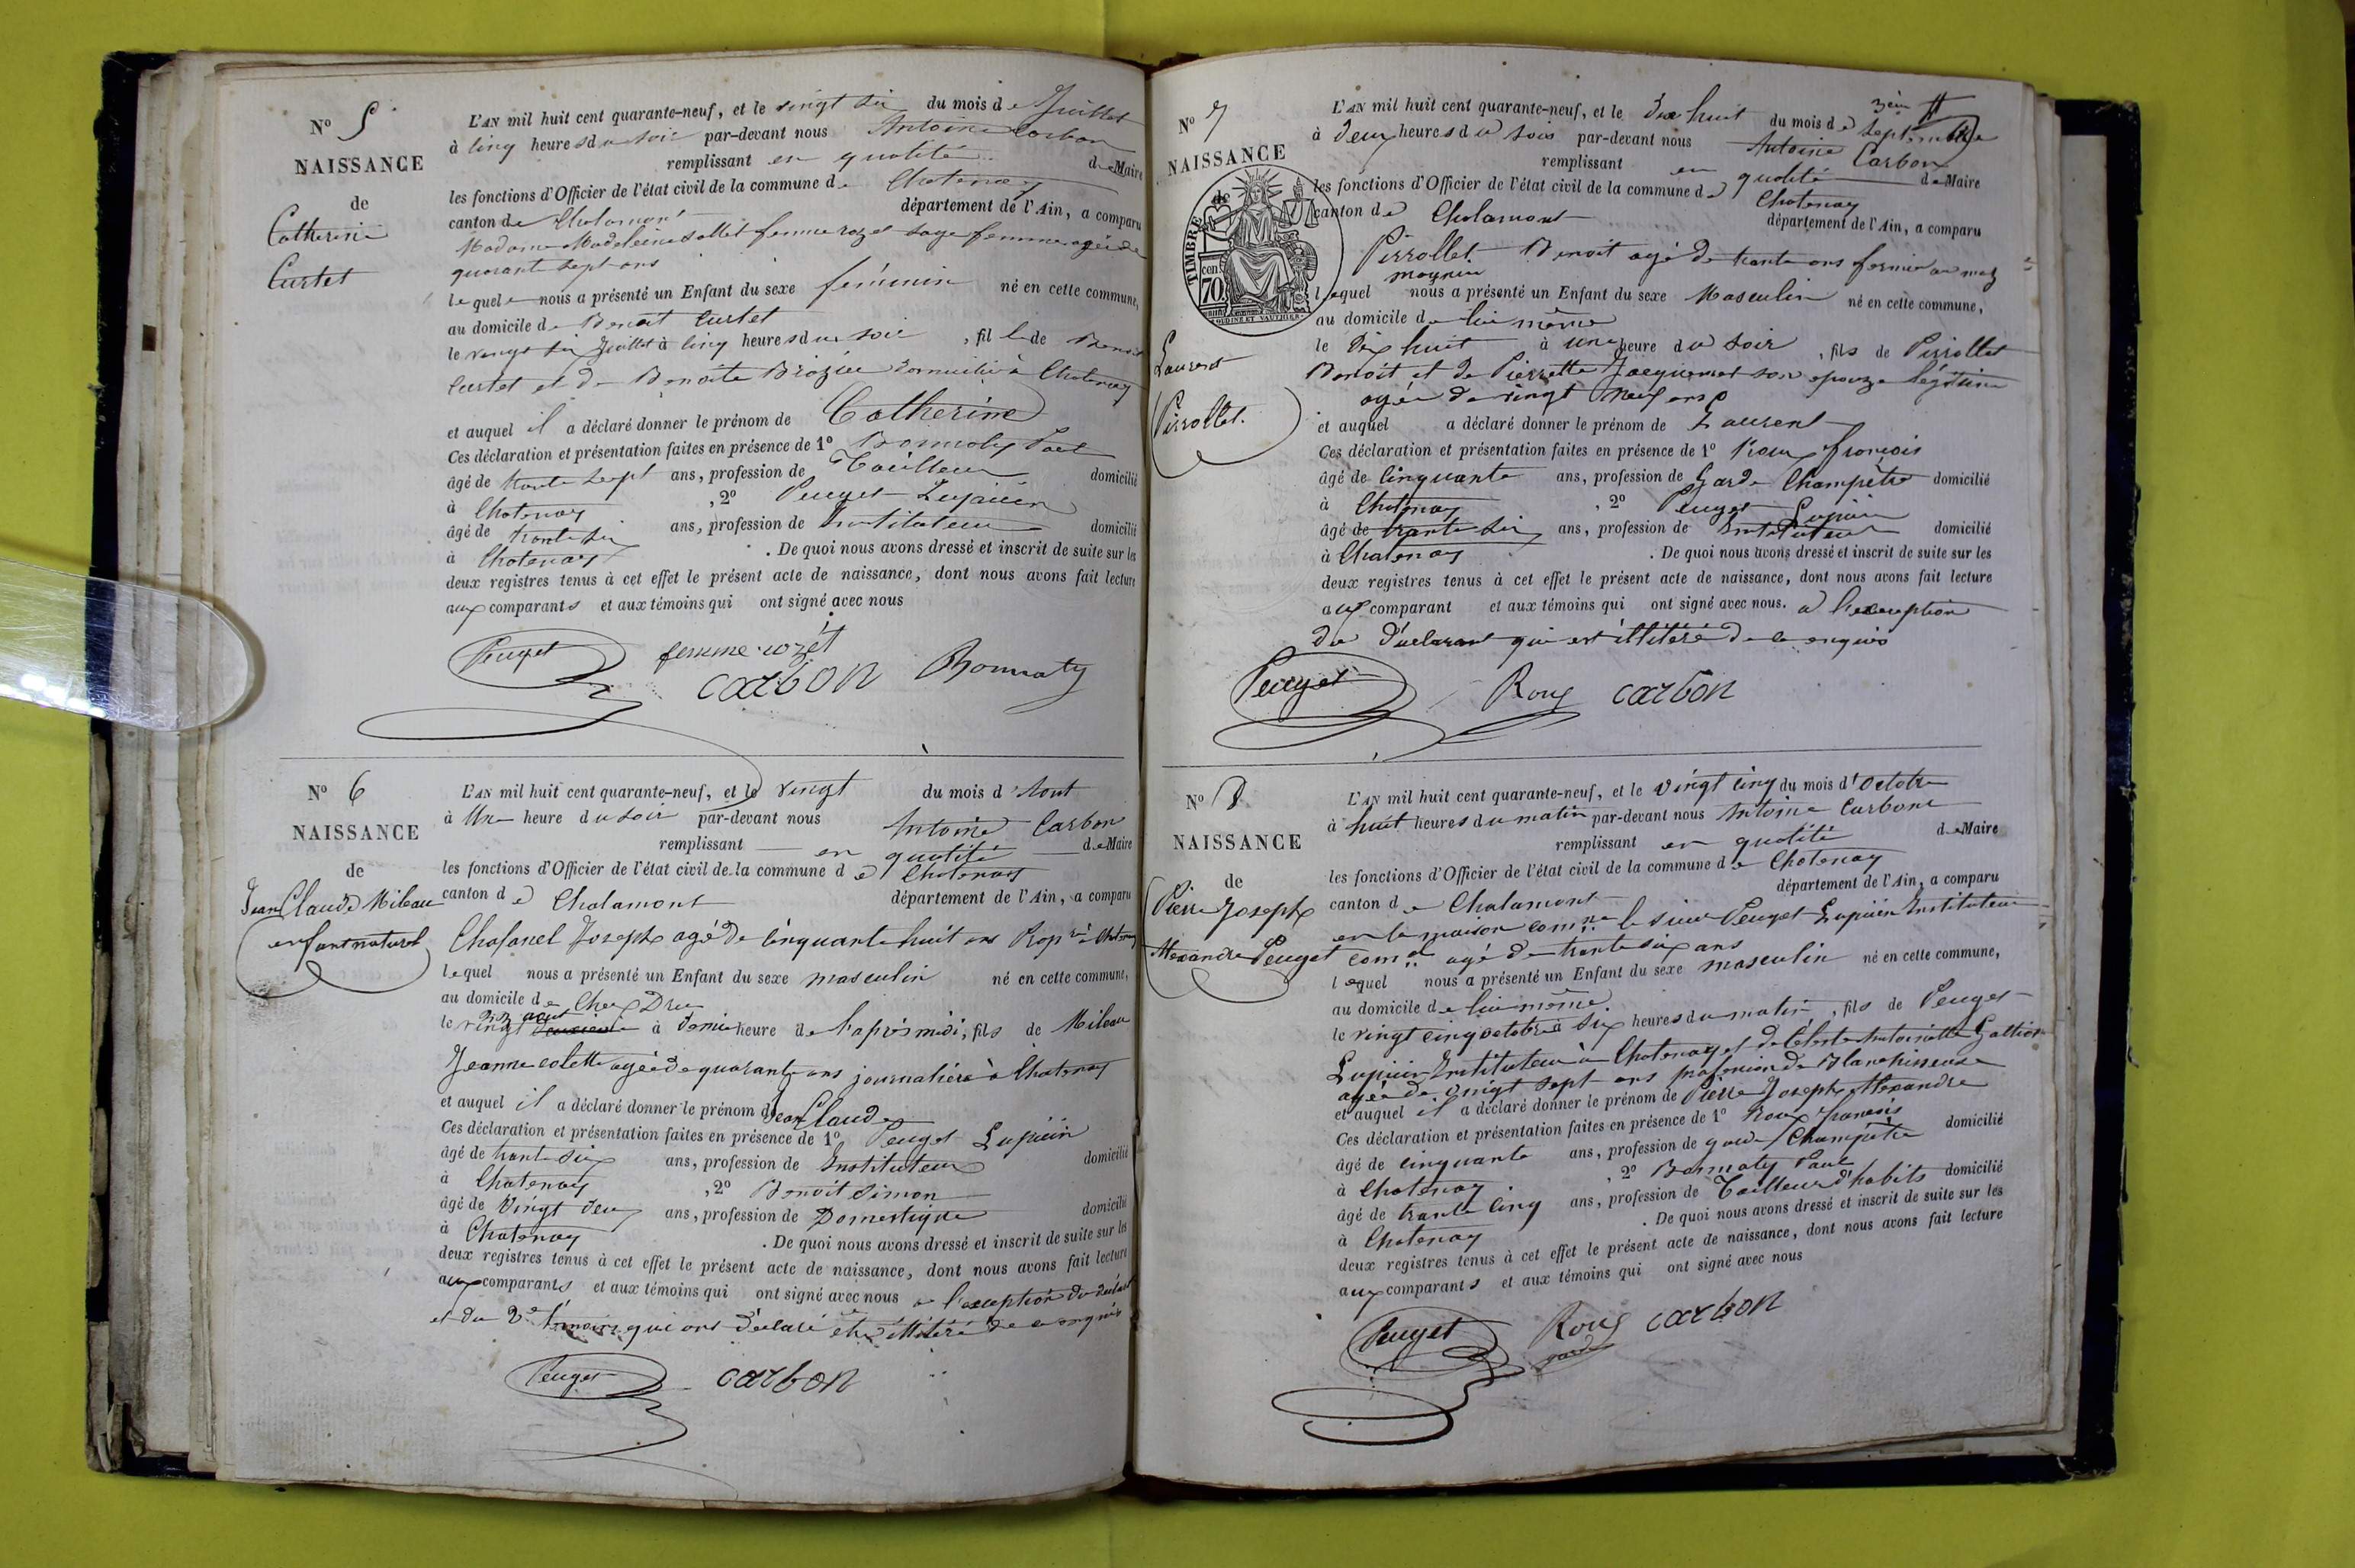 N° 5
NAISSANCE
de
Catherine
Curtet
L'AN mil huit cent quarante-neuf, et le vingt six du mois de Juillet
à cinq heures du soir par-devant nous Antoine Carbon
remplissant en qualité de Maire
les fonctions d'Officier de l'état civil de la commune de Chatenay
canton de Chalamont département de l'Ain, a comparu
Madame Madeleine Sallet femme rozet sage femme agée de
quarant sept ans
lequele nous a présenté un Enfant du sexe féminin né en cette commune,
au domicile de Benoit Curtet
le vingt six Juillet à cinq heures du soir, fille de Benoit
Curtet et de Benoite Brozier domicilié à Chatenay
et auquel il a déclaré donner le prénom de Catherine
Ces déclaration et présentation faites en présence de 1° Bonnaty Paul
âgé de trente sept ans, profession de Tailleur domicilié
à Chatenay, 2° Peuget Lupicin
âgé de trente six ans, profession de Instituteur domicilié
à Chatenay. De quoi nous avons dressé et inscrit de suite sur les
deux registres tenus à cet effet le présent acte de naissance, dont nous avons fait lecture
aux comparants et aux témoins qui ont signé avec nous
Peuget femme rozet
carbon Bonnaty
N° 6
NAISSANCE
de
Jean Claude Mileau
enfant naturel
L'AN mil huit cent quarante-neuf, et le vingt du mois d'Aout
à Une heure du soir par-devant nous Antoine Carbon
remplissant en qualité de Maire
les fonctions d'Officier de l'état civil de la commune de Chatenay
canton de Chalamont département de l'Ain, a comparu
Chafanel Joseph agé de cinquante huit ans Propre à Chatenay
lequel nous a présenté un Enfant du sexe masculin né en cette commune,
au domicile de Chez Dru
le vingt aout à demie heure de l'après midi, fils de Mileau
Jeanne colette agée de quarante ans journalière à Chatenay
et auquel il a déclaré donner le prénom de Jean Claude
Ces déclaration et présentation faites en présence de 1° Peuget Lupicin
âgé de trente six ans, profession de Instituteur domicilié
à Chatenay, 2° Benoit Simon
âgé de Vingt deux ans, profession de Domestique domicilié
à Chatenay. De quoi nous avons dressé et inscrit de suite sur les
deux registres tenus à cet effet le présent acte de naissance, dont nous avons fait lecture
aux comparants et aux témoins qui ont signé avec nous a l'exception du déclarant
et du 2e témoin qui ont déclaré etre illitéré de ce enquis
Peuget carbon
3ème
N° 7
NAISSANCE
de
TIMBRE
cen. 70
OUDINE ET VAUTHIER
Laurent
Pirrollet.
L'AN mil huit cent quarante-neuf, et le dix huit du mois de Septembre
à deux heures du soir par-devant nous Antoine Carbon
remplissant en qualité de Maire
les fonctions d'Officier de l'état civil de la commune de Chatenay
canton de Chalamont département de l'Ain, a comparu
Pirrollet Benoit agé de trente ans fermier au maz
magnin
lequel nous a présenté un Enfant du sexe Masculin né en cette commune,
au domicile de lui même
le Dix huit à une heure du soir, fils de Pirrollet
Benoit et de Pierrette Jacquemet son epouze légitime
agée de vingt neuf ans
et auquel a déclaré donner le prénom de Laurent
Ces déclaration et présentation faites en présence de 1° Roux françois
âgé de cinquante ans, profession de Garde Champètre domicilié
à Chatenay, 2° Peuget Lupicin
âgé de trente six ans, profession de Instituteur domicilié
à Chatenay. De quoi nous avons dressé et inscrit de suite sur les
deux registres tenus à cet effet le présent acte de naissance, dont nous avons fait lecture
aux comparant et aux témoins qui ont signé avec nous. a l'exception
du déclarant qui est illitéré de ce enquis
Peuget Roux carbon
N° 8
NAISSANCE
de
Pierre Joseph
Alexandre Peuget
L'AN mil huit cent quarante-neuf, et le vingt cinq du mois d'Octobre
à huit heures du matin par-devant nous Antoine Carbone
remplissant en qualité de Maire
les fonctions d'Officier de l'état civil de la commune de Chatenay
canton de Chalamont département de l'Ain, a comparu
en la maison comne le sieur Peuget Lupicin Instituteur
comal agé de trente six ans
lequel nous a présenté un Enfant du sexe masculin né en cette commune,
au domicile de lui même
le vingt cinq octobre à six heures du matin, fils de Peuget
Lupicin Instituteur à Chatenay et de Céleste Antoinette
agée de vingt sept ans profession de Blanchisseuse
et auquel il a déclaré donner le prénom de Pierre Joseph Alexandre
Ces déclaration et présentation faites en présence de 1° Roux françois
âgé de cinquante ans, profession de garde Champètre domicilié
à Chatenay, 2° Bonnaty Paul
âgé de trante cinq ans, profession de Tailleur d'habits domicilié
à Chatenay. De quoi nous avons dressé et inscrit de suite sur les
deux registres tenus à cet effet le présent acte de naissance, dont nous avons fait lecture
aux comparants et aux témoins qui ont signé avec nous
Peuget Roux carbon
garde